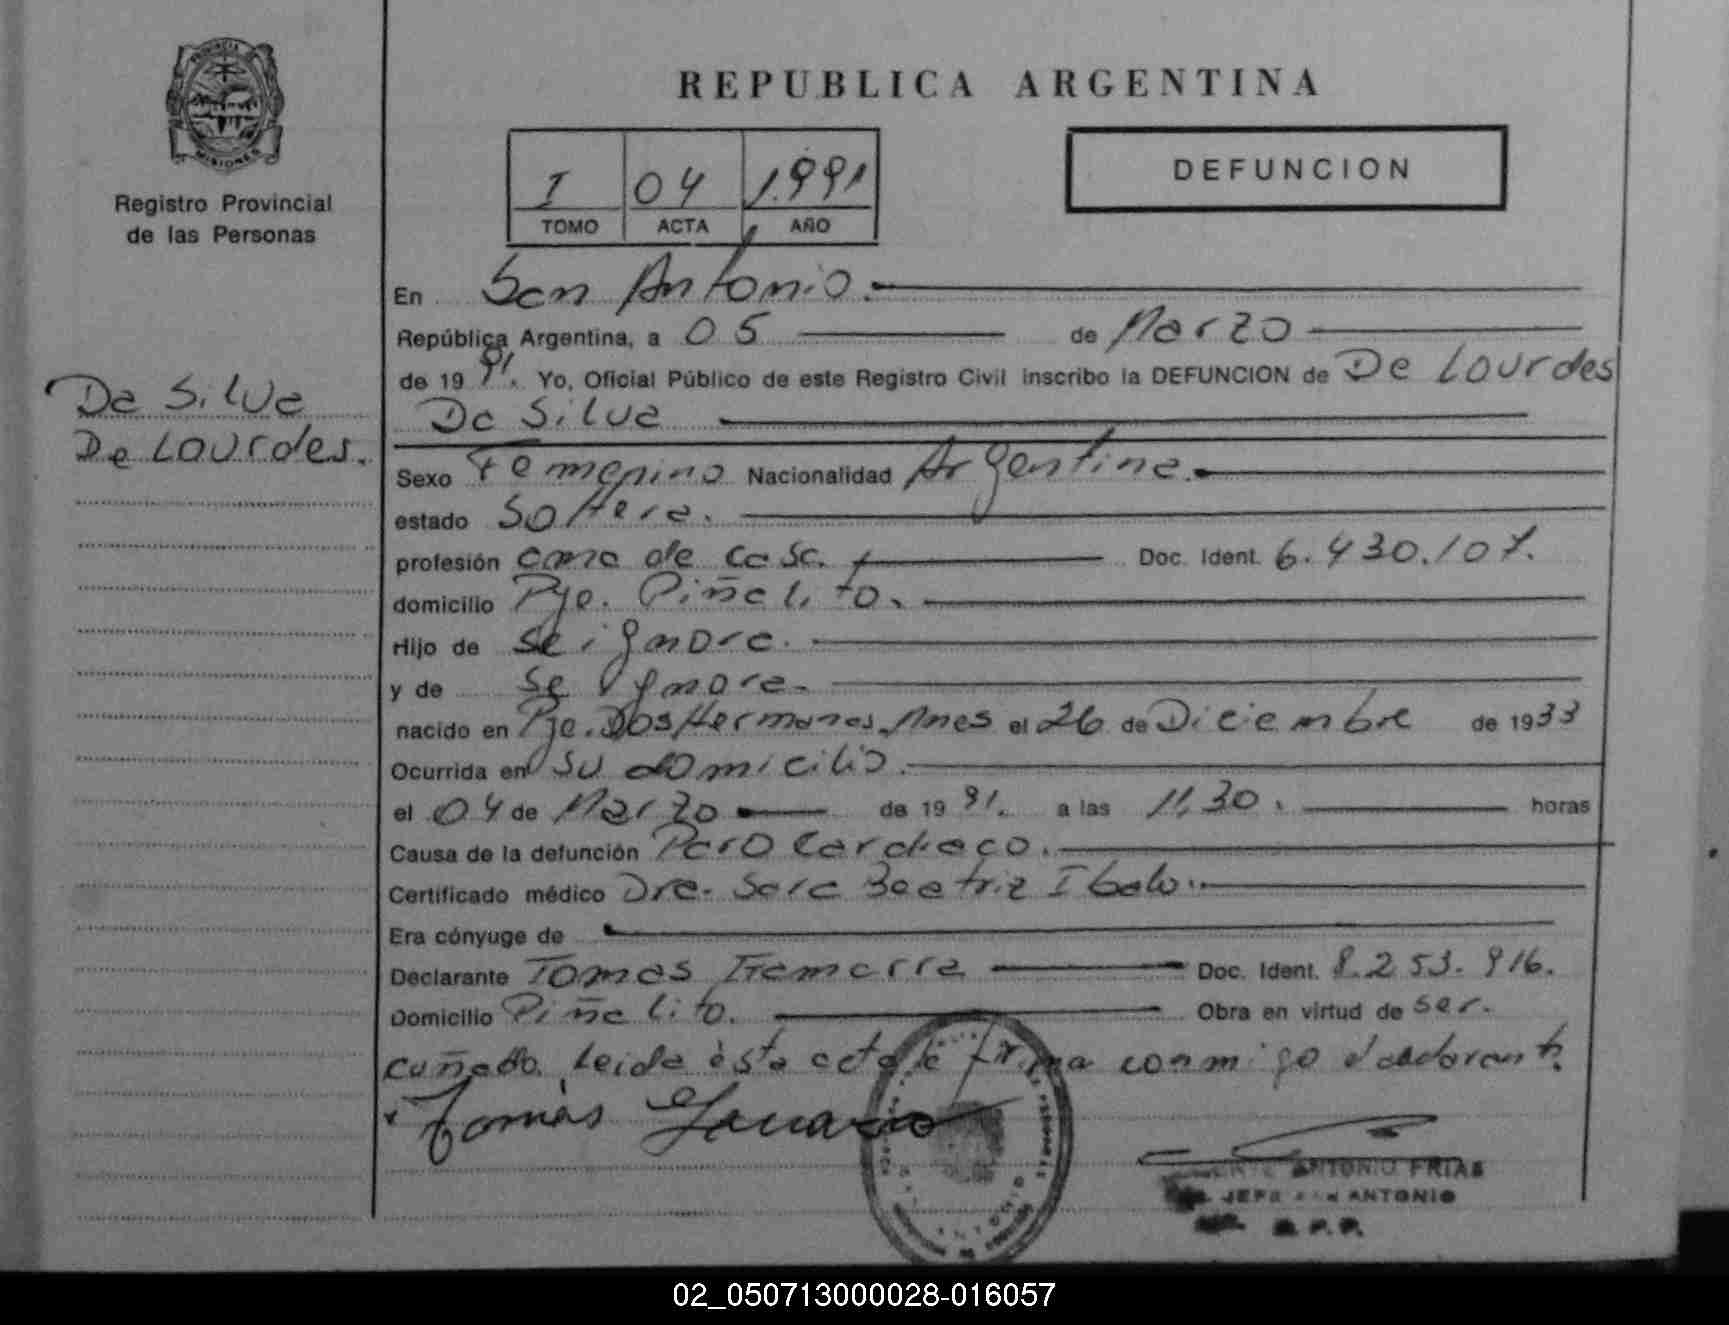 PROVINCIA DE
MISIONES
Registro Provincial
de las Personas
Da Silva
De Lourdes.
REPUBLICA ARGENTINA
I 04 1.991
TOMO ACTA AÑO
DEFUNCION
En San Antonio.
República Argentina, a 05 de Marzo
de 19 91. Yo, Oficial Público de este Registro Civil inscribo la DEFUNCION de De Lourdes
Da Silva
Sexo Femenino Nacionalidad Argentina.
estado Soltera.
profesión ama de casa. Doc. Ident. 6.430.107.
domicilio Pje. Piñalito.
Hijo de se ignora.
y de se ygnora.
nacido en Pje. Dos Hermanas, Mnes el 26 de Diciembre de 1933
Ocurrida en su domicilio.
el 04 de Marzo de 19 91. a las 11,30. horas
Causa de la defunción Paro Cardiaco.
Certificado médico Dra. Sara Beatriz Ibalo.
Era cónyuge de
Declarante Tomas Doc. Ident. 8.253.916.
Domicilio Piñalito. Obra en virtud de ser.
cuñado. Leida ésta acta la firma conmigo el declarante.
Tomás
ANTONIO FRIAS
JEFE SAN ANTONIO
R.P.P.
02_050713000028-016057